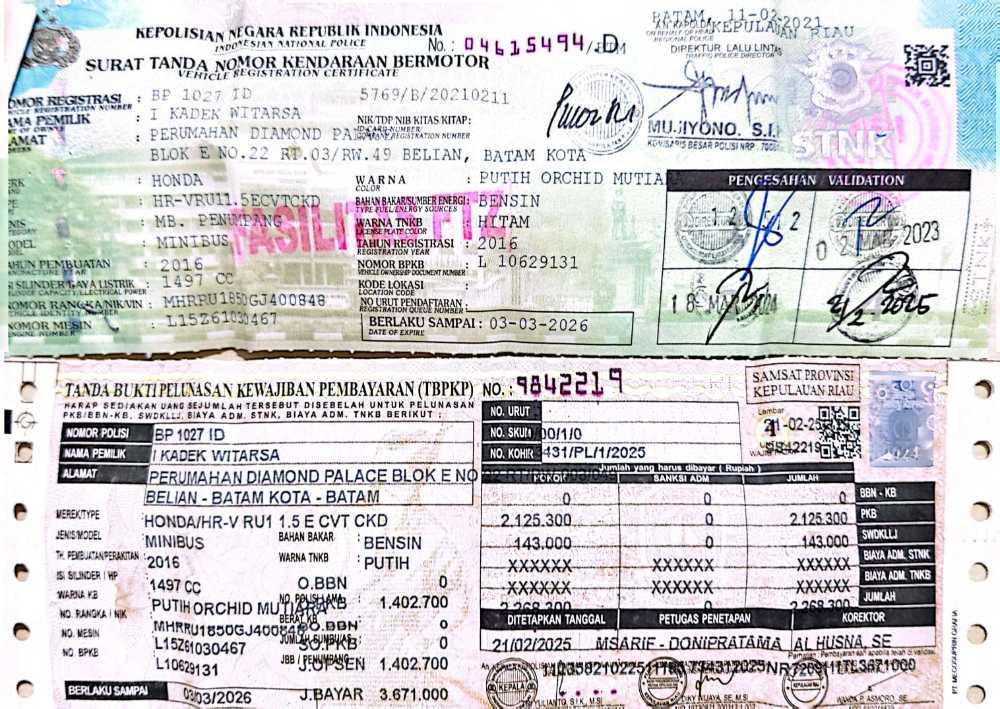 KEPOLISIAN NEGARA REPUBLIK INDONESIA
INDONESIAN NATIONAL POLICE
No. : 04615494
SURAT TANDA NOMOR KENDARAAN BERMOTOR
VEHICLE REGISTRATION CERTIFICATE
BATAM, 11-02-2021
AN KAPOLDA KEPULAUAN RIAU
ON BEHALF OF HEAD REGIONAL POLICE
DIREKTUR LALU LINTAS
TRAFFIC POLICE DIRECTOR
MUJIYONO. S.I.
KOMISARIS BESAR POLISI NRP.
STNK
NOMOR REGISTRASI : BP 1027 ID 5769/B/20210211
REGISTRATION NUMBER
NAMA PEMILIK : I KADEK WITARSA NIK/TDP NIB KITAS/KITAP :
ALAMAT : PERUMAHAN DIAMOND
BLOK E NO.22 RT.03/RW.49 BELIAN, BATAM KOTA
MERK : HONDA
WARNA : PUTIH ORCHID MUTIA
COLOR
: HR-VRU11.5ECVTCKD
BAHAN BAKAR/SUMBER ENERGI : BENSIN
TYPE FUEL/ENERGY SOURCES
JENIS : MB. PENUMPANG
WARNA TNKB : HITAM
LICENSE PLATE COLOR
MODEL : MINIBUS
TAHUN REGISTRASI : 2016
REGISTRATION YEAR
TAHUN PEMBUATAN : 2016
NOMOR BPKB : L 10629131
VEHICLE OWNERSHIP DOCUMENT NUMBER
ISI SILINDER/DAYA LISTRIK : 1497 CC
KODE LOKASI :
LOCATION CODE
NOMOR RANGKA/NIK/VIN : MHRRU1850GJ400848
VEHICLE IDENTITY NUMBER
NO URUT PENDAFTARAN :
REGISTRATION QUEUE NUMBER
NOMOR MESIN : L15Z61030467
ENGINE NUMBER
BERLAKU SAMPAI : 03-03-2026
DATE OF EXPIRE
PENGESAHAN VALIDATION
2023
18 MAR 2024
2/2-2025
TANDA BUKTI PELUNASAN KEWAJIBAN PEMBAYARAN (TBPKP) NO. : 9842219
HARAP SEDIAKAN UANG SEJUMLAH TERSEBUT DISEBELAH UNTUK PELUNASAN
PKB/BBN-KB, SWDKLLJ, BIAYA ADM. STNK, BIAYA ADM. TNKB BERIKUT :
SAMSAT PROVINSI
KEPULAUAN RIAU
Lembar
1
21-02-25
NO. URUT
NO. SKUM 00/1/0
NO. KOHIR 431/PL/1/2025
NOMOR POLISI BP 1027 ID
NAMA PEMILIK I KADEK WITARSA
ALAMAT PERUMAHAN DIAMOND PALACE BLOK E NO
BELIAN - BATAM KOTA - BATAM
Jumlah yang harus dibayar ( Rupiah )
POKOK SANKSI ADM JUMLAH
0 0 0 BBN - KB
2.125.300 0 2.125.300 PKB
143.000 0 143.000 SWDKLLJ
XXXXXX XXXXXX XXXXXX BIAYA ADM. STNK
XXXXXX XXXXXX XXXXXX BIAYA ADM. TNKB
2.268.300 0 2.268.300 JUMLAH
MEREK/TYPE HONDA/HR-V RU1 1.5 E CVT CKD
JENIS/MODEL MINIBUS
BAHAN BAKAR : BENSIN
TH. PEMBUATAN/PERAKITAN : 2016
WARNA TNKB : PUTIH
ISI SILINDER / HP 1497 CC O.BBN 0
WARNA KB PUTIH ORCHID MUTIARA
NO. POLISI LAMA 1.402.700
NO. RANGKA / NIK MHRRU1850GJ400848
BERAT KB O.BBN 0
NO. MESIN L15Z61030467
SO.PKB 0
NO. BPKB L10629131
JBB / PENUMPANG 1.402.700
BERLAKU SAMPAI 03/03/2026 J.BAYAR 3.671.000
DITETAPKAN TANGGAL PETUGAS PENETAPAN KOREKTOR
21/02/2025 MSARIF - DONIPRATAMA / AL HUSNA, SE
KEPALA